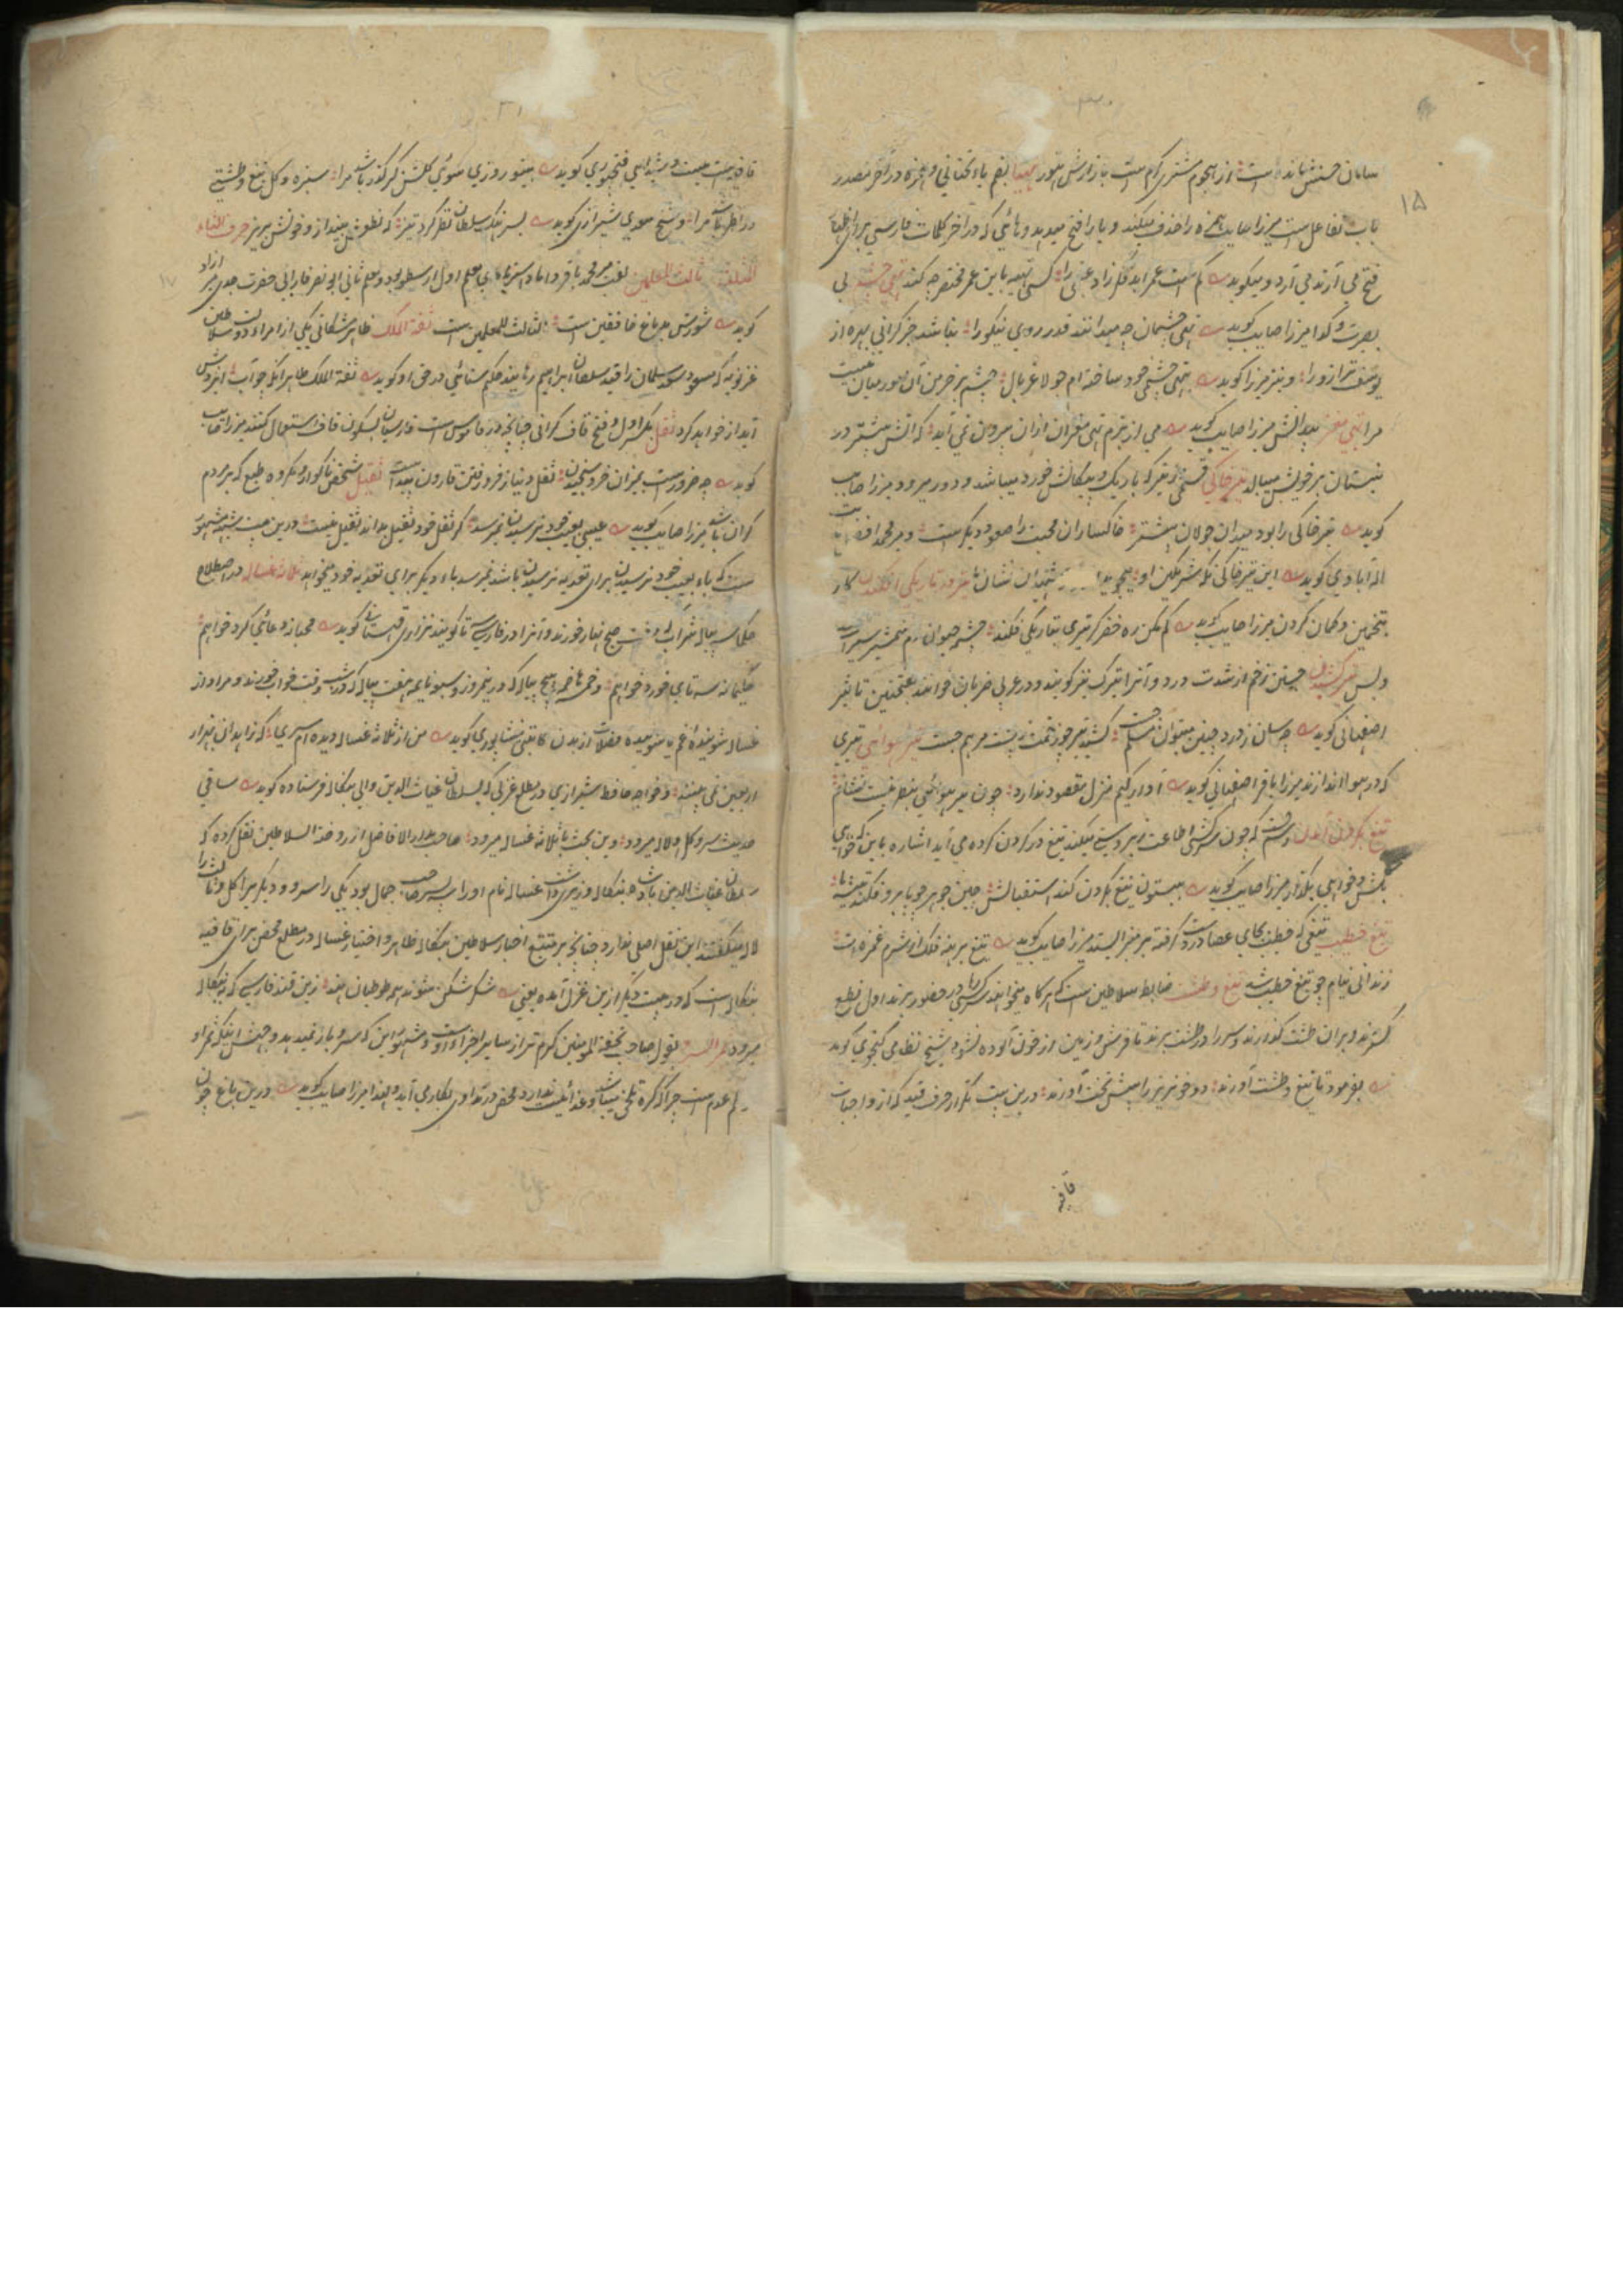 ۱۵
سامان حسنش مانده است از هجوم مشتری گرم است بازارش هنوز تهیا بفم یاء تحتانی و همزه در آخر مصدر
باب تفاعل است میرزا صایب همزه را حذف میکند و یا را فتح میدهد و هائی که در آخر کلمات فارسی برای اظهار
فتح می آرند می آرد و میگوید کم است عمر ابد گر زاد عقبی را کسی تهیه باین عمر مختصر چه کند تهی چشم بی
بصیرت و گدا میرزا صایب گوید تهی چشمان چه میدانند قدر روی نیکو را نباشد جز گرانی بهره از
یوسف ترازو را و نیز میرزا گوید تهی چشمی خود ساخته ام جولا غربال چشم بر خرمن آن مور میان نیست
مرا تهی مغز بیدانش میرزا صایب گوید می از بزم تهی مغزان ازان بیرون نمی آید که آتش بیشتر در
نیستان بر خویش میبالد تیر خاکی قسمی از تیر که باریک و پیکانش خورد میباشد و دور میرود میرزا صایب
گوید تیر خاکی را بود میدان جولان بیشتر خاکساران محبت را صعود دیگر است و میر محمد افضل ثابت
اله آبادی گوید این تیر خاکی نگه شرمگین او میجوید شهیدان نشان ما تیر در تاریکی افکندن کار
بتخمین و گمان کردن میرزا صایب گوید گم مکن ره خضر گر تیری بتاریکی فکند چشمه حیوان دم شمشیر سیرابست
و بس تیر کشیدن جستن زخم از شدت درد و آنرا تیرک نیز گویند و در عربی ضربان خوانند بفتحتین تاثیر
اصفهانی گوید چه سان ز درد چنین میتوان مسلم جست کشد تیر چو زخمت ز پشت مرهم جست تیر هوایی تیری
که در هوا اندازند میرزا باقر اصفهانی گوید آواره گیم منزل مقصود ندارد چون تیر هوائی بنظر نیست نشانم
تیغ بگردن آمدن رسمست که چون سرکش اطاعت زبردستی میکند تیغ در گردن کرده می آید اشاره باین که خواهی
بکش و خواهی بگذار میرزا صایب گوید بیستون تیغ بگردن کند استقبالش چین جوهر چو بابرو فکند تیشه ما
تیغ خطیب تیغی که خطیب بجای عصا در دست گرفته بر منبر ایستد میرزا صایب گوید تیغ برهنه فلک از شرم غمزه ات
زندانی نیام چو تیغ خطیب شد تیغ و طشت ضابط سلاطین است که هر گاه میخواهند سر کسی را در حضور برند اول نطع
گسترند و بران طشت گذارند و سر را در طشت برند تا فرش و زمین از خون آلوده نشود شیخ نظامی گنجوی گوید
بفرمود تا تیغ و طشت آورند دو خونریز را پیش تخت آورند درین بیت تکرار حرف قید که از واجبات
قافیه
قافیه است نیست و شیدای فتحپوری گوید بنوروزی سوی گلشن گر گذر باشد مرا سبزه و گل تیغ و طشتی
در نظر باشد مرا و شیخ سعدی شیرازی گوید بسر نک سلطان نظر کرد تیز که نطعش بینداز و خونش بریز حرف الثاء
المثلثه ثالث المعلمین لقب میر محمد باقر داماد استرابادی معلم اول ارسطو بود و معلم ثانی ابو نصر فارابی حضرت جدی میر آزاد
گوید شورش بدماغ خافقین است الثالث للمعلمین است ثقة الملک طاهر مشکانی یکی از امراء دولت سلاطین
غزنویه که مسعود سعد سلمان را قید سلطان ابراهیم رهانید حکیم سنائی در حق او گوید ثقة الملک طاهر آنکه جوآب آبروش
آبداز خواهد کرد ثقل بکسر اول و فتح قاف گرانی چنانچه در قاموس است فارسیان بسکون قاف استعمال کنند میرزا صایب
گوید چه ضرور است بمیزان خرد سنجیدن ثقل دنیا ز فرو رفتن قارون پیداست ثقیل شخص ناگوار و مکروه طبع که بر مردم
گران باشد میرزا صایب گوید عیبی بعیب خود نرسیدن نمیرسد گر ثقل خود ثقیل بداند ثقیل نیست درین بیت شبه مشهور
است که باء بعیب خود نرسیدن برای تعدیه نرسیدن باشد نمیرسد باء دیگر برای تعدیه خود میخواهد ثلاثه غساله در اصطلاح
حکما سه پیاله شراب که وقت صبح نهار خورند و آنرا در فارسی ستا گویند نزاری قهستانی گوید مجبانه دعائی کرد خواهم
حکیمانه سه تای خورد خواهم و خمسه هاضمه پنج پیاله که در نیمروز و سبع نایمه هفت پیاله که در شب وقت خواب خورند و مراد از
غساله شوینده غم یا شوینده فضلات از بدن کاتبی نیشاپوری گوید من از ثلاثه غساله دیده ام سیری که زاهدان هزار
اربعین نمی بینند و خواجه حافظ شیرازی در مطلع غزلی که بسلطان غیاث الدین والی بنگاله فرستاده گوید ساقی
حدیث سرو و گل و لاله میرود وین بحث با ثلاثه غساله میرود صاحب مدار الافاضل از روضة السلاطین نقل کرده که
سلطان غیاث الدین بادشاه بنگاله وزیری داشت غساله نام او را سه پسر صاحب جمال بود یکی را سرو و دیگر را گل و ثالث را
لاله میگفتند این نقل اصلی ندارد چنانچه بر متتبع اخبار سلاطین بنگاله ظاهر و اختیار غساله در مطلع محض برای قافیه
بنگاله است که در بیت دیگر ازین غزل آمده یعنی شکر شکن شوند همه طوطیان هند زین قند فارسی که ببنگاله
میرود ثمر السرو بقول صاحب تحفة المومنین گرم تر از سایر اجزاء اوست و مشهور این که سرو بار نمیدهد وجهش اینکه ثمر او
در حکم عدم است چرا که گره تلخی میباشد و غذائیت ندارد و محض در تداوی بکار می آید و لهذا میرزا صایب گوید درین باغ چون